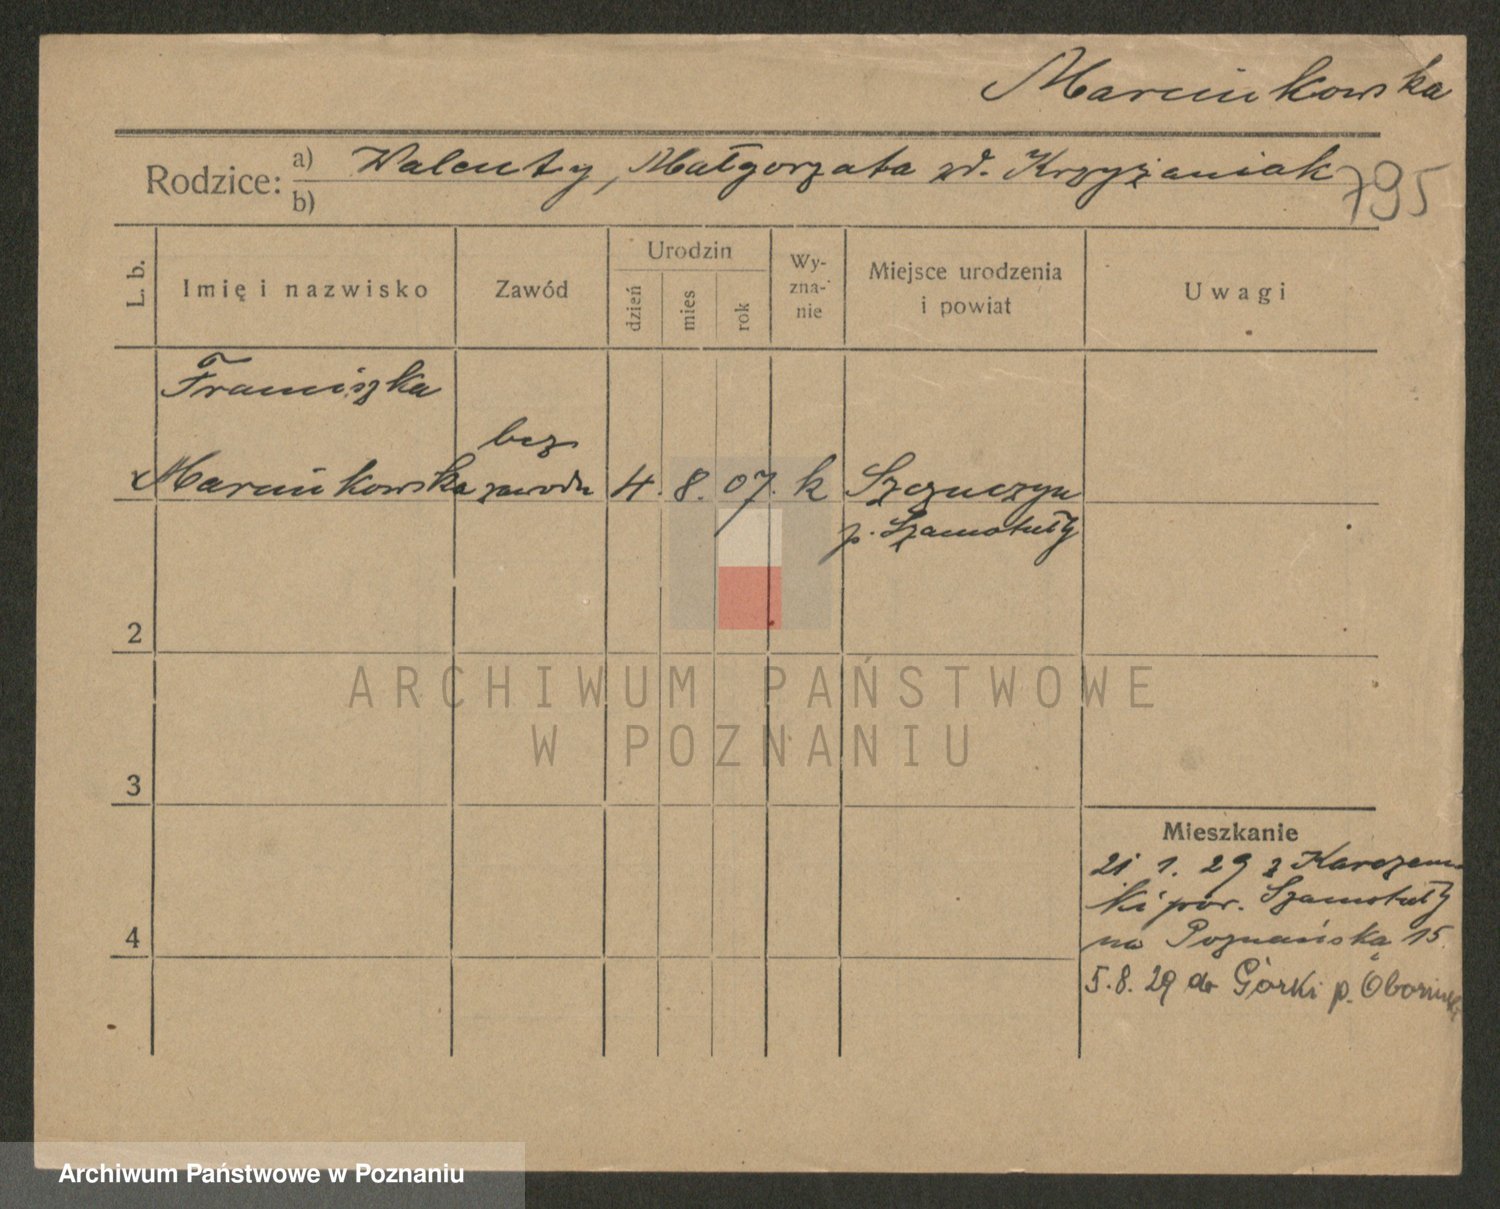 Marcinkowska
Rodzice: a) Walenty, Małgorzata zd. Krzyżaniak
b)
795
L. b.
Imię i nazwisko
Zawód
Urodzin
dzień
mies
rok
Wy-
zna-
nie
Miejsce urodzenia
i powiat
Uwagi
Franciszka
Marcinkowska
bez
zawodu
4. 8. 07. k
Szczuczyn
p. Szamotuły
2
3
4
Mieszkanie
21 1. 29 z
pow. Szamotuły
na Poznańską 15.
5.8.29 do Górki p.
ARCHIWUM PAŃSTWOWE
W POZNANIU
Archiwum Państwowe w Poznaniu